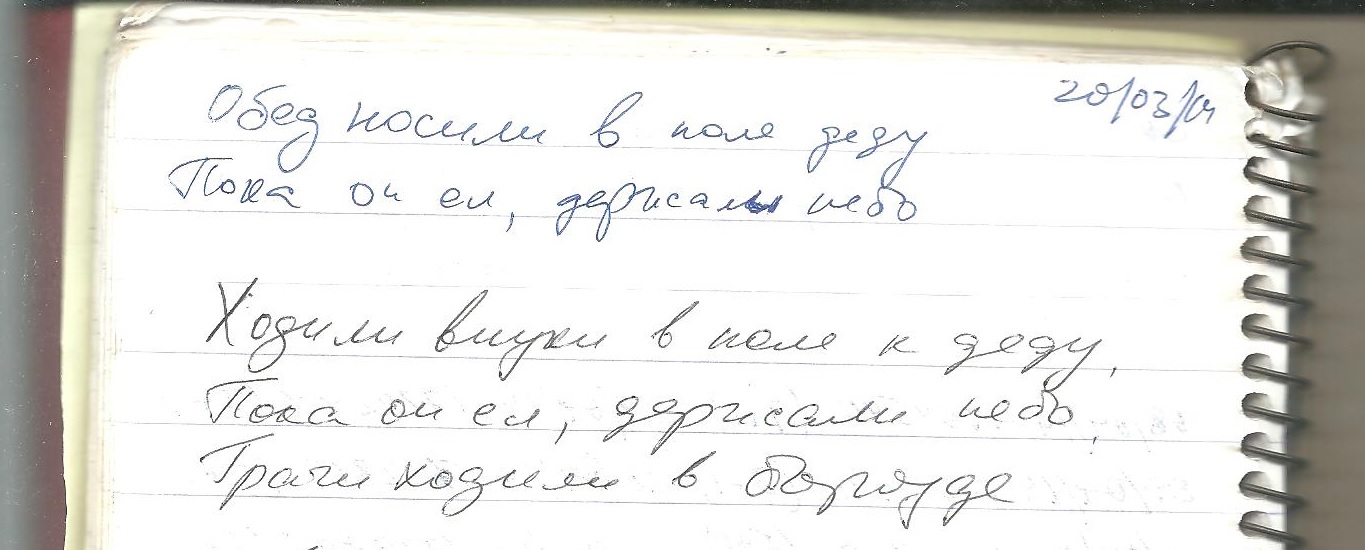 20/03/14
Обед носили в поле деду
Пока он ел, держали небо
Ходили внуки в поле к деду,
Пока он ел, держали небо,
Грачи ходили в борозде